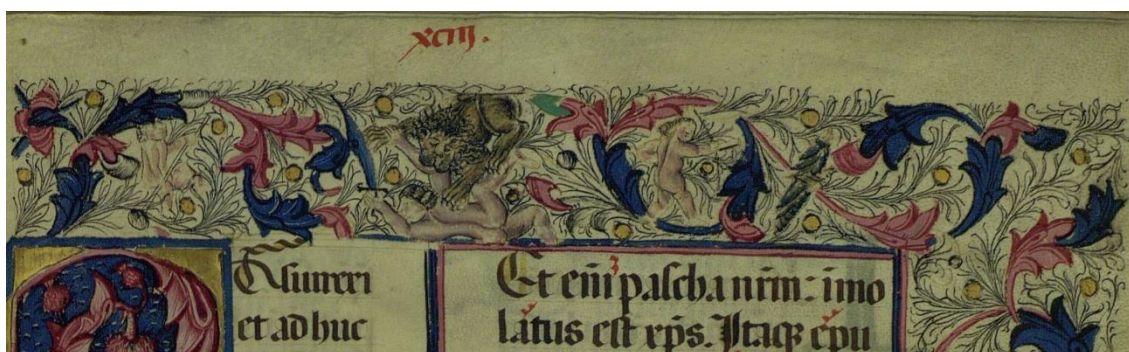 xciij.
Resurrexi
et adhuc
Et eni pascha nrm: imo
latus est xp̄s. Itaqꝫ epu